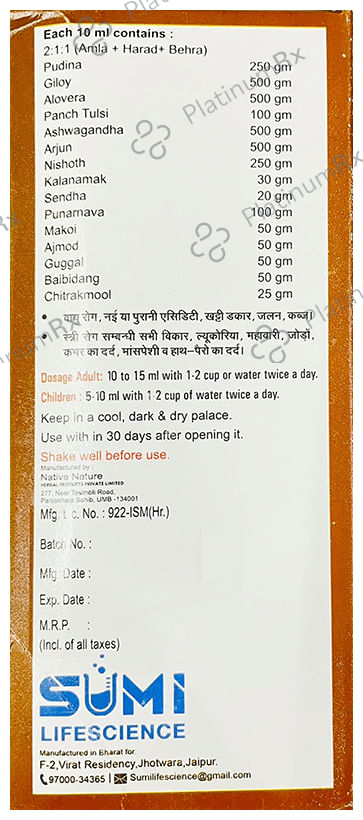 Each 10 ml contains :
2:1:1 (Amla + Harad+ Behra)
Pudina 250 gm
Giloy 500 gm
Alovera 500 gm
Panch Tulsi 100 gm
Ashwagandha 500 gm
Arjun 500 gm
Nishoth 250 gm
Kalanamak 30 gm
Sendha 20 gm
Punarnava 100 gm
Makoi 50 gm
Ajmod 50 gm
Guggal 50 gm
Baibidang 50 gm
Chitrakmool 25 gm
• वायु रोग, नई या पुरानी एसिडिटी, खट्टी डकार, जलन, कब्ज।
• स्त्री रोग सम्बन्धी सभी विकार, ल्यूकोरिया, महावारी, जोड़ो,
कमर का दर्द, मांसपेशी व हाथ-पैरो का दर्द।
Dosage Adult: 10 to 15 ml with 1-2 cup or water twice a day.
Children : 5-10 ml with 1 2 cup of water twice a day.
Keep in a cool, dark & dry palace.
Use with in 30 days after opening it.
Shake well before use.
Manufactured by :
Native Nature
HERBAL PRODUCTS PRIVATE LIMITED
277, Near Tasimbli Road,
Panjokhara Sahib, UMB -134001
Mfg. Lic. No. : 922-ISM(Hr.)
Batch No. :
Mfg. Date :
Exp. Date :
M.R.P. :
(Incl. of all taxes)
SUMI
LIFESCIENCE
Manufactured in Bharat for:
F-2,Virat Residency,Jhotwara,Jaipur.
97000-34365 | Sumilifescience@gmail.com
PlatinumRx
PlatinumRx
PlatinumRx